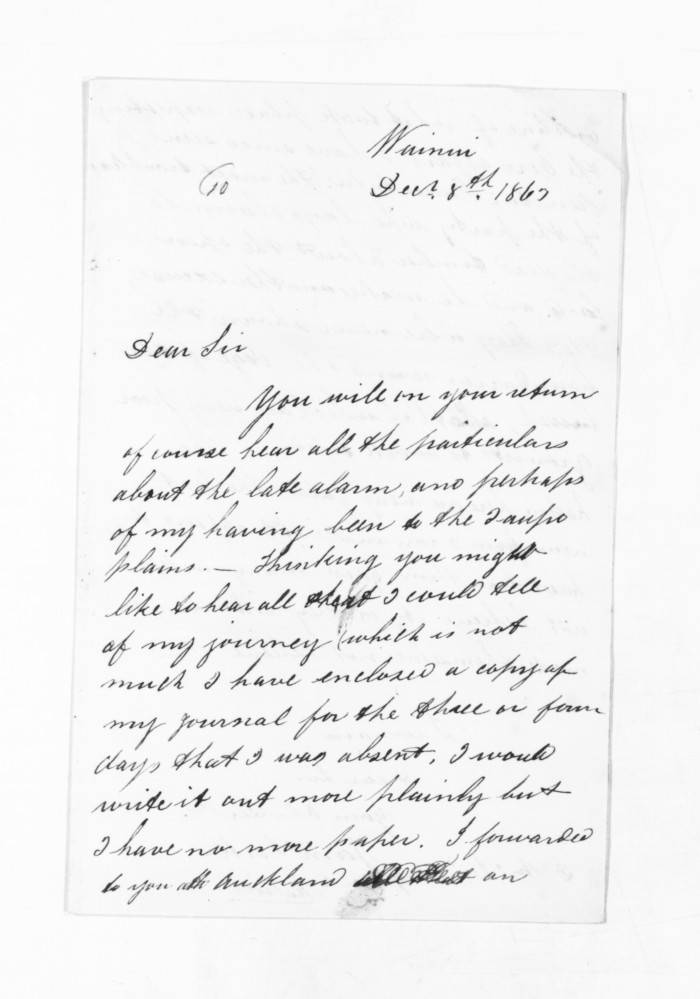 Wainui
(10
Decr. 8th. 1867
Dear Sir
You will on your return
of course hear all the particulars
about the late alarm, and perhaps
of my having been to the Taupo
plains. — Thinking you might
like to hear all that I could tell
of my journey (which is not
much I have enclosed a copy of
my journal for the three or four
days that I was absent, I would
write it out more plainly but
I have no more paper. I forwarded
to you at Auckland an